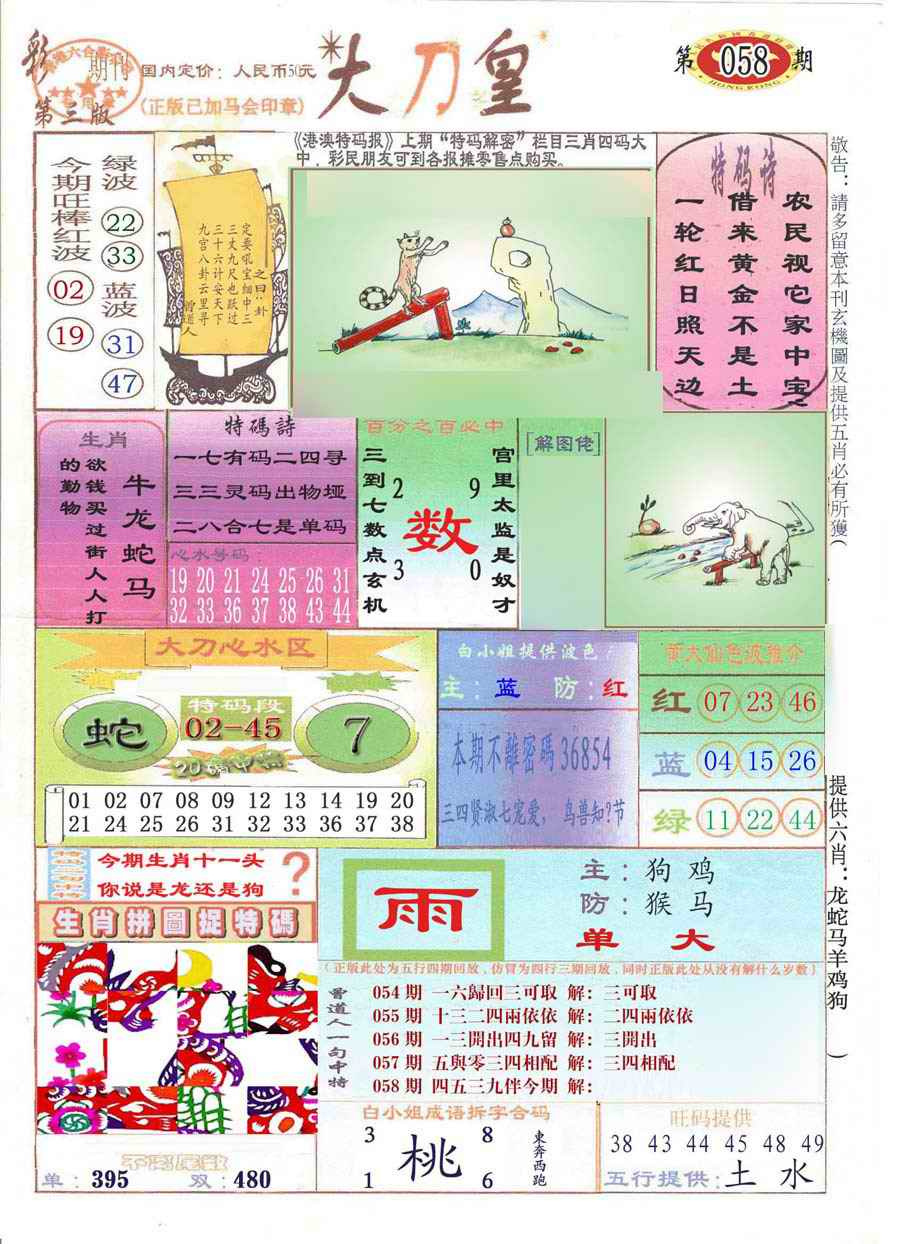 彩
期刊
第三版
国内定价：人民币50元
(正版已加马会印章)
大刀皇
第058期
HONG KONG
《港澳特码报》上期“特码解密”栏目三肖四码大
中，彩民朋友可到各报摊零售点购买。
今期旺棒红波
02
19
绿波
22
33
蓝波
31
47
定要吼宝细中三
三丈九尺也跃过
三十六计安天下
九宫八卦云里寻
之曰：卦
曾道人
特码诗
农民视它家中宝
借来黄金不是土
一轮红日照天边
敬告：請多留意本刊玄機圖及提供五肖必有所獲(
生肖
牛龙蛇马
欲钱买过街人人打
的勤物
特碼詩
一七有码二四寻
三三灵码出物垭
二八合七是单码
心水号码：
19 20 21 24 25 26 31
32 33 36 37 38 43 44
百分之百必中
三到七数点玄机
2 9
数
3 0
宫里太监是奴才
[解图佬]
大刀心水区
特码段
蛇
02-45
7
20碼中特
01 02 07 08 09 12 13 14 19 20
21 24 25 26 31 32 33 36 37 38
白小姐提供波色
主：蓝 防：红
本期不離密碼36854
三四贤淑七宠爱，鸟兽知?节
黄大仙色波推介
红 07 23 46
蓝 04 15 26
绿 11 22 44
提供六肖：龙蛇马羊鸡狗 )
今期生肖十一头
你说是龙还是狗
?
生肖拼圖捉特碼
单：395 双：480
雨
主：狗鸡
防：猴马
单 大
(正版此处为五行四期回放，仿冒为四行三期回放，同时正版此处从没有解什么岁数)
曾道人一句中特
054期 一六歸回三可取 解：三可取
055期 十三二四兩依依 解：二四兩依依
056期 一三開出四九留 解：三開出
057期 五與零三四相配 解：三四相配
058期 四五三九伴今期 解：
白小姐成语拆字合码
3 8
桃
1 6
東奔西跑
旺码提供
38 43 44 45 48 49
五行提供：土 水